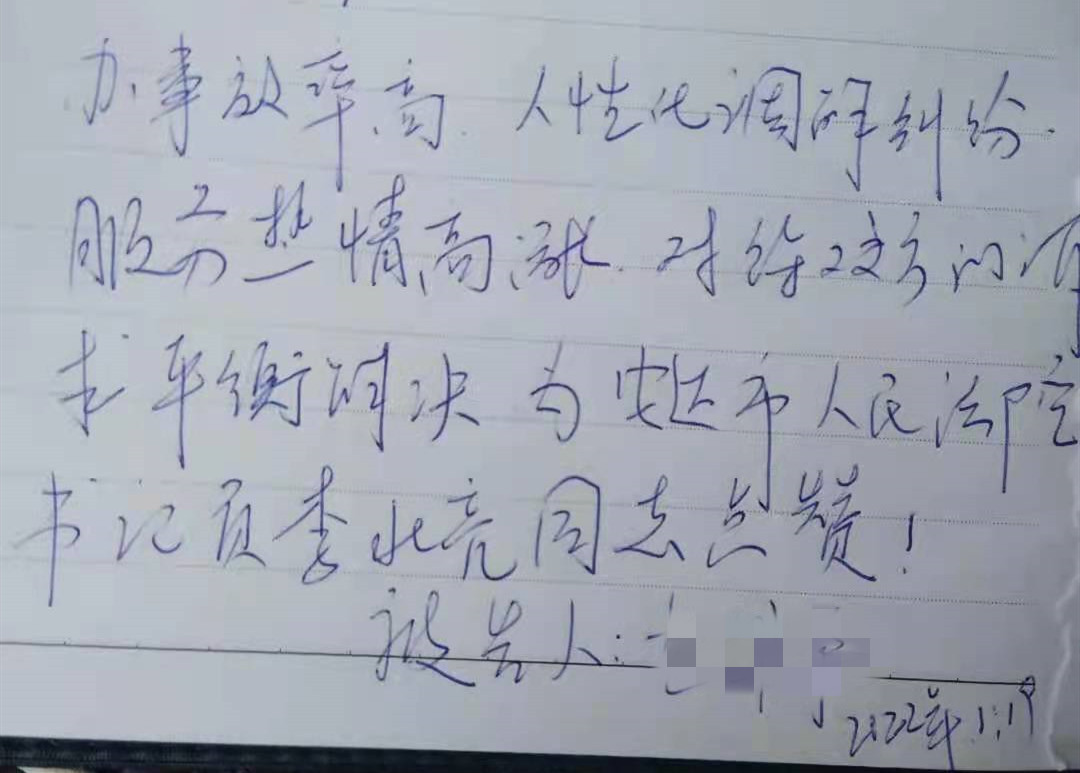 办事效率高.人性化调解纠纷.
服务热情高涨.对待双方的
求平衡解决 为安达市人民法院
书记员李兆亮同志点赞!
被告人:
2022年1.19